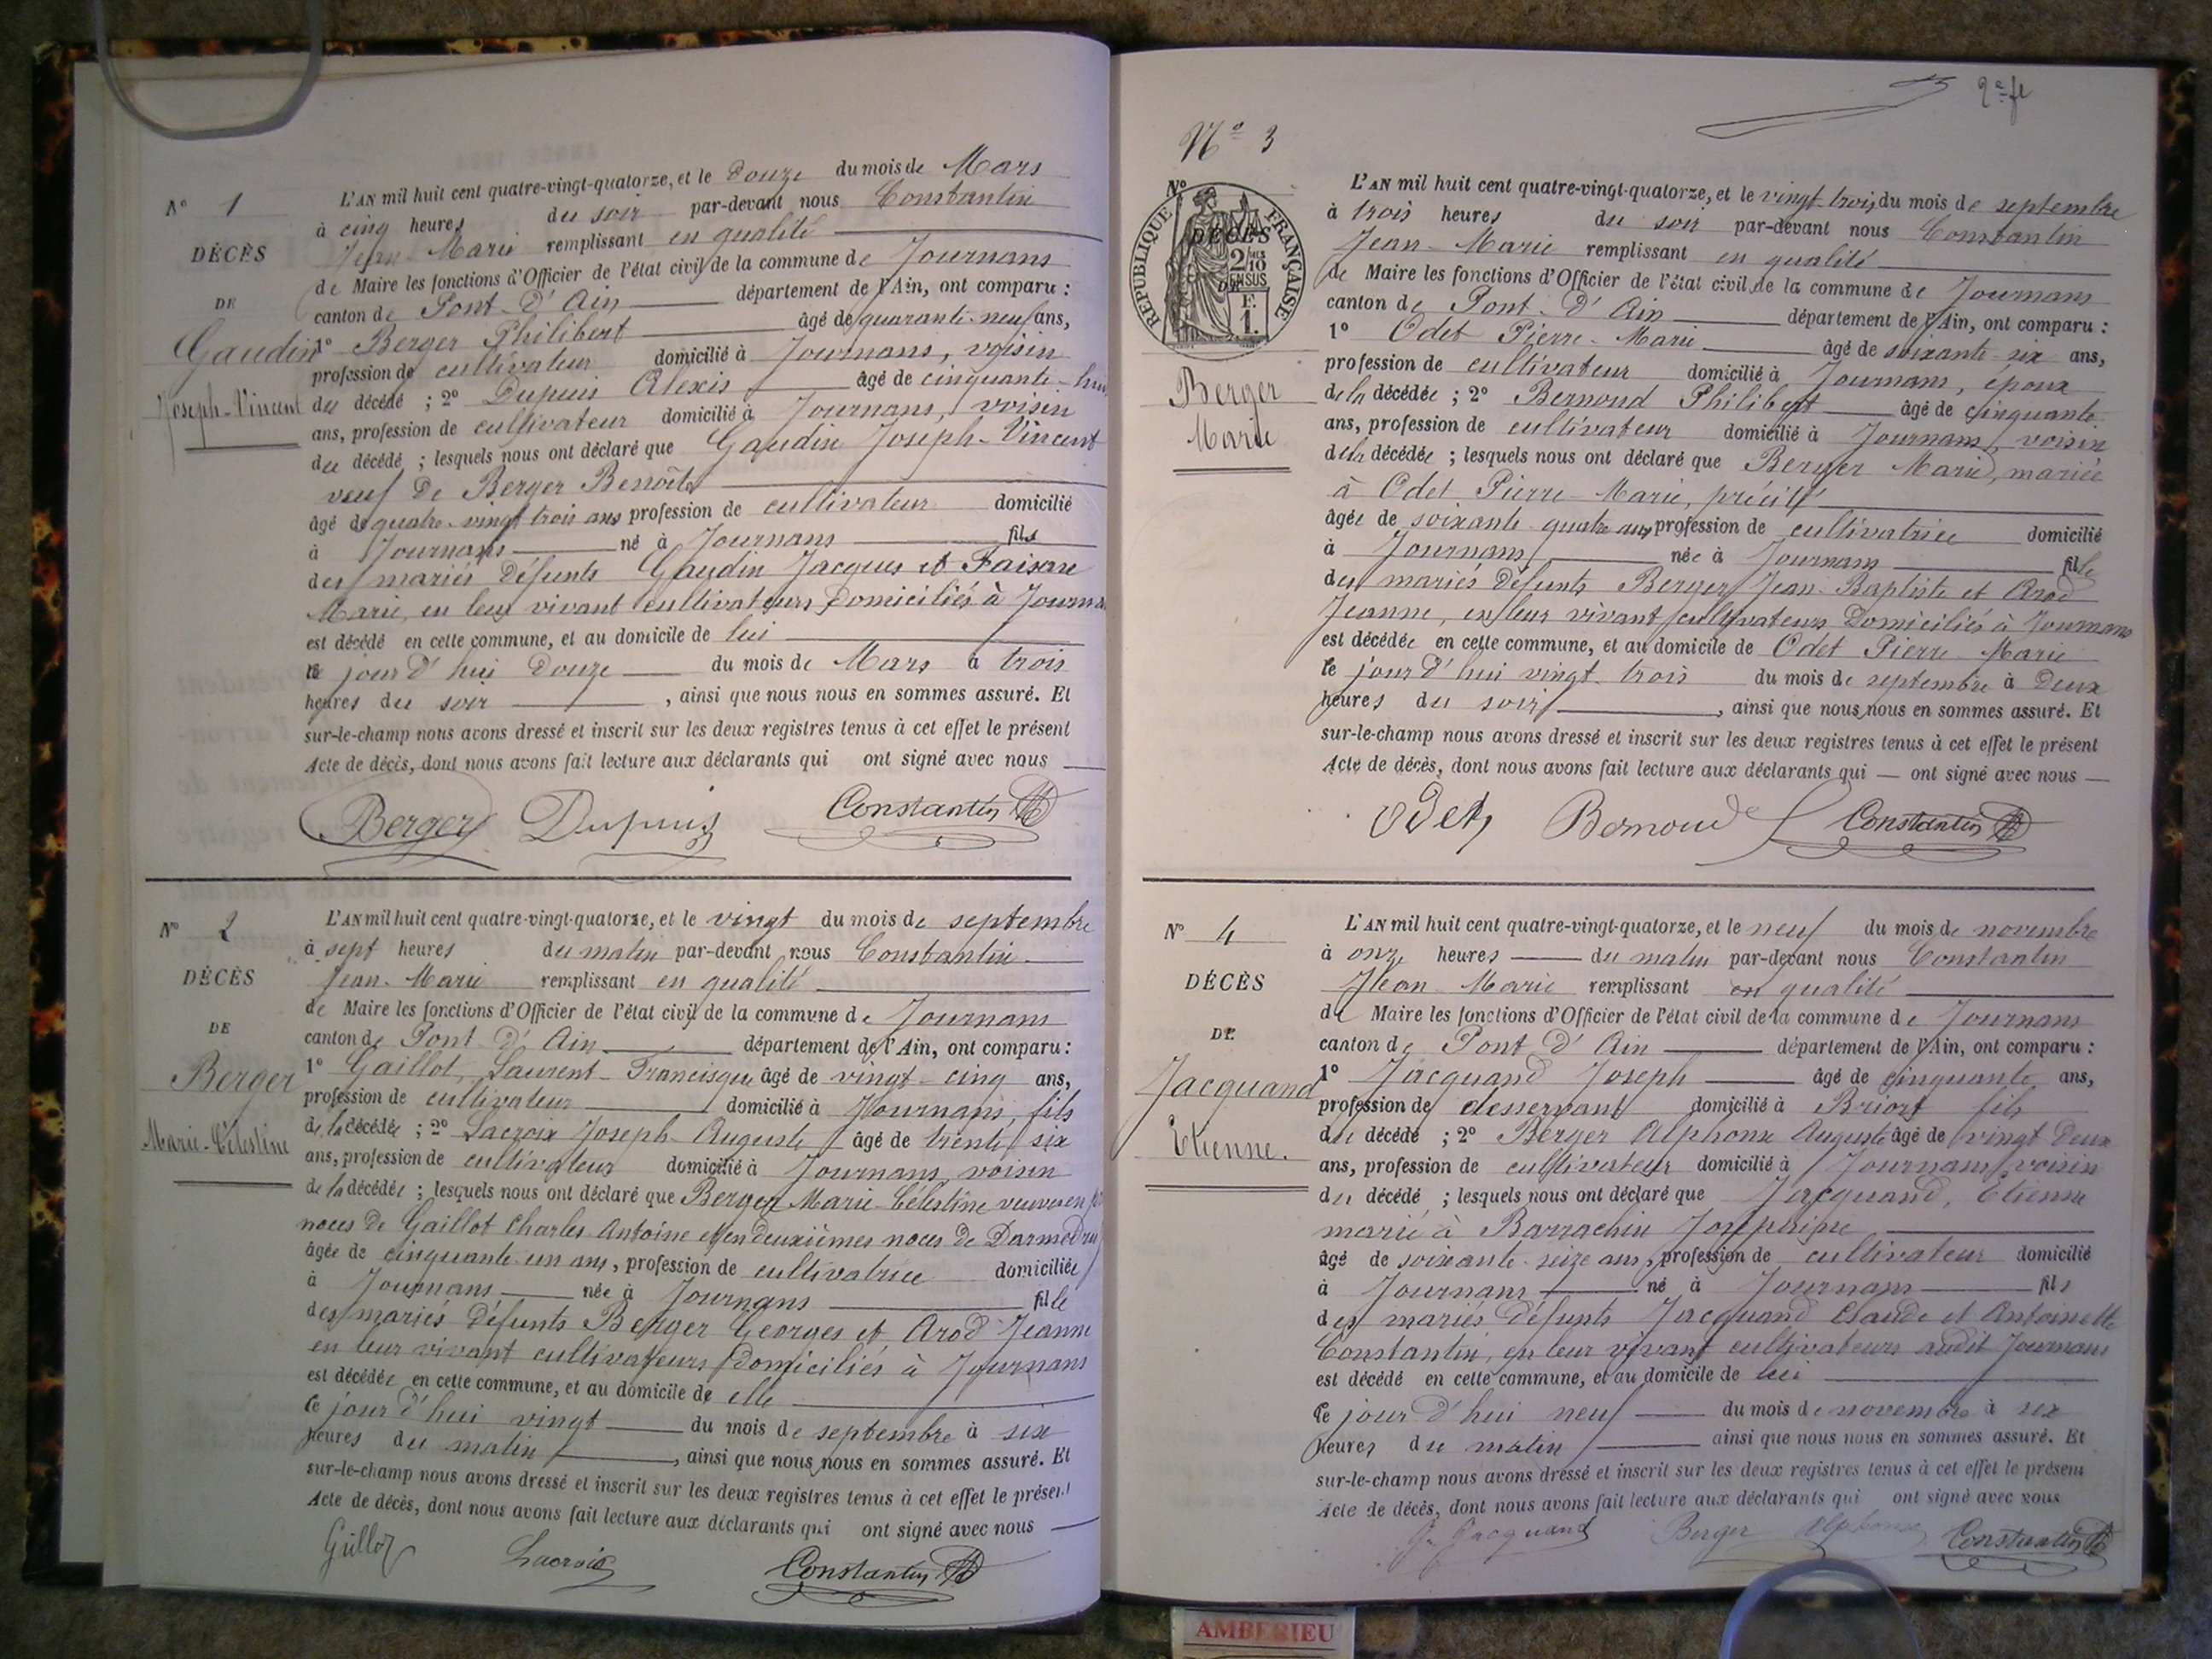 N° 1
DÉCÈS
DE
Gaudin
Joseph-Vincent
L'AN mil huit cent quatre-vingt-quatorze, et le douze du mois de Mars
à cinq heures du soir par-devant nous Constantin
Jean-Marie remplissant en qualité
de Maire les fonctions d'Officier de l'état civil de la commune de Journans
canton de Pont-d'Ain département de l'Ain, ont comparu :
1° Berger Philibert âgé de quarante-neuf ans,
profession de cultivateur domicilié à Journans, voisin
du décédé ; 2° Dupuis Alexis âgé de cinquante-
ans, profession de cultivateur domicilié à Journans, voisin
du décédé ; lesquels nous ont déclaré que Gaudin Joseph-Vincent
veuf de Berger Benoîte
âgé de quatre-vingt trois ans profession de cultivateur domicilié
à Journans né à Journans fils
des mariés défunts Gaudin Jacques et
Marie, en leur vivant cultivateurs domiciliés à
est décédé en cette commune, et au domicile de lui
le jour d'hui douze du mois de Mars à trois
heures du soir , ainsi que nous nous en sommes assuré. Et
sur-le-champ nous avons dressé et inscrit sur les deux registres tenus à cet effet le présent
Acte de décès, dont nous avons fait lecture aux déclarants qui ont signé avec nous
Berger Dupuis Constantin
N° 2
DÉCÈS
DE
Berger
Marie-Célestine
L'AN mil huit cent quatre-vingt-quatorze, et le vingt du mois de septembre
à sept heures du matin par-devant nous Constantin
Jean-Marie remplissant en qualité
de Maire les fonctions d'Officier de l'état civil de la commune de Journans
canton de Pont d'Ain département de l'Ain, ont comparu :
1° Gaillot, Laurent-Francisque âgé de vingt-cinq ans,
profession de cultivateur domicilié à Journans, fils
de la décédée ; 2° Lacroix Joseph-Auguste âgé de trente six
ans, profession de cultivateur domicilié à Journans voisin
de la décédée ; lesquels nous ont déclaré que Berger Marie-Célestine veuve en
noces de Gaillot Charles Antoine et en deuxièmes noces de
âgée de cinquante-un ans, profession de cultivatrice domiciliée
à Journans née à Journans fille
des mariés défunts Berger Georges et Arod Jeanne
en leur vivant cultivateurs domiciliés à Journans
est décédée en cette commune, et au domicile de elle
le jour d'hui vingt du mois de septembre à six
heures du matin , ainsi que nous nous en sommes assuré. Et
sur-le-champ nous avons dressé et inscrit sur les deux registres tenus à cet effet le présent
Acte de décès, dont nous avons fait lecture aux déclarants qui ont signé avec nous
Gaillot Lacroix Constantin
2e fl
N° 3
N°
RÉPUBLIQUE FRANÇAISE
DÉCÈS
2/10 EN SUS
DE
1 F.
Berger
Marie
L'AN mil huit cent quatre-vingt-quatorze, et le vingt-trois du mois de septembre
à trois heures du soir par-devant nous Constantin
Jean-Marie remplissant en qualité
de Maire les fonctions d'Officier de l'état civil de la commune de Journans
canton de Pont-d'Ain département de l'Ain, ont comparu :
1° Odet Pierre-Marie âgé de soixante-six ans,
profession de cultivateur domicilié à Journans, époux
de la décédée ; 2° Bernoud Philibert âgé de cinquante
ans, profession de cultivateur domicilié à Journans, voisin
de la décédée ; lesquels nous ont déclaré que Berger Marie, mariée
à Odet Pierre-Marie, précité
âgée de soixante-quatre ans profession de cultivatrice domicilié
à Journans née à Journans fille
des mariés défunts Berger Jean-Baptiste et Arod
Jeanne, en leur vivant cultivateurs domiciliés à Journans
est décédée en cette commune, et au domicile de Odet Pierre-Marie
le jour d'hui vingt-trois du mois de septembre à deux
heures du soir , ainsi que nous nous en sommes assuré. Et
sur-le-champ nous avons dressé et inscrit sur les deux registres tenus à cet effet le présent
Acte de décès, dont nous avons fait lecture aux déclarants qui — ont signé avec nous —
Odet Bernoud Constantin
N° 4
DÉCÈS
DE
Jacquand
Etienne.
L'AN mil huit cent quatre-vingt-quatorze, et le neuf du mois de novembre
à onze heures du matin par-devant nous Constantin
Jean-Marie remplissant en qualité
de Maire les fonctions d'Officier de l'état civil de la commune de Journans
canton de Pont d'Ain département de l'Ain, ont comparu :
1° Jacquand Joseph âgé de cinquante ans,
profession de desservant domicilié à Briort fils
du décédé ; 2° Berger Alphonse Auguste âgé de vingt-deux
ans, profession de cultivateur domicilié à Journans, voisin
du décédé ; lesquels nous ont déclaré que Jacquand, Etienne
marié à Barrachin Joséphine
âgé de soixante-seize ans, profession de cultivateur domicilié
à Journans né à Journans fils
des mariés défunts Jacquand Claude et Antoinette
Constantin, en leur vivant cultivateurs audit Journans
est décédé en cette commune, et au domicile de lui
le jour d'hui neuf du mois de novembre à six
heures du matin ainsi que nous nous en sommes assuré. Et
sur-le-champ nous avons dressé et inscrit sur les deux registres tenus à cet effet le présent
Acte de décès, dont nous avons fait lecture aux déclarants qui ont signé avec nous
J. Jacquand Berger Alphonse Constantin
AMBERIEU